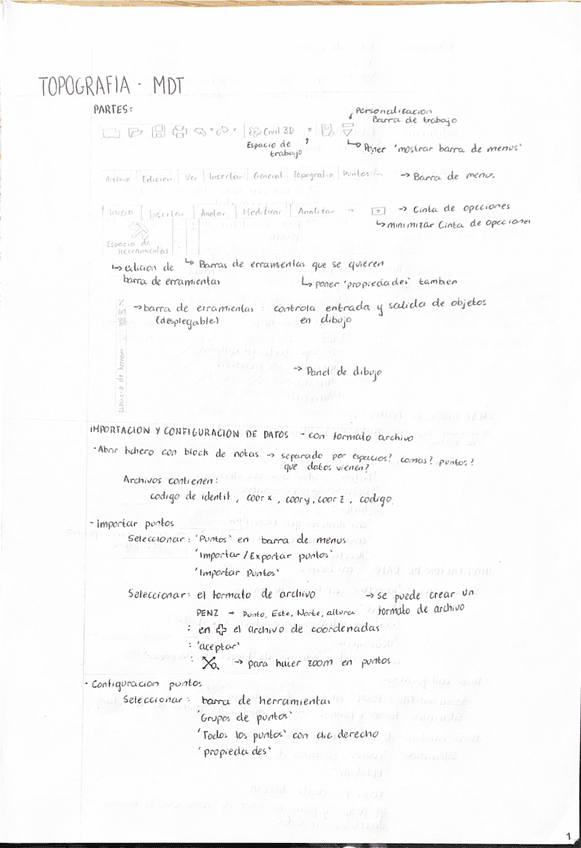 TOPOGRAFIA · MDT
PARTES:
Personalizacion
Barra de trabajo
Civil 3D
Espacio de trabajo
↳ Poner 'mostrar barra de menus'
Archivo | Edicion | Ver | Insertar | General | Topografia | Puntos
→ Barra de menus
Inicio | Insertar | Anotar | Modificar | Analizar
→ Cinta de opciones
↳ minimizar Cinta de opciones
Espacio de herramientas
↳ edicion de barra de erramientas
↳ Barras de erramientas que se quieren
↳ poner 'propiedades' tambien
→ barra de erramientas : controla entrada y salida de objetos
(desplegable) en dibujo
→ Panel de dibujo
IMPORTACION Y CONFIGURACION DE DATOS - con formato archivo
· Abrir fichero con block de notas → separado por espacios? comas? puntos?
que datos vienen?
Archivos contienen:
codigo de identif, coor x, coor y, coor z, codigo.
- Importar puntos
Seleccionar : 'Puntos' en barra de menus
'Importar / Exportar puntos'
'Importar Puntos'
Seleccionar : el formato de archivo → se puede crear un
PENZ → Punto, Este, Norte, altura formato de archivo
: en ✚ el archivo de coordenadas
: 'aceptar'
: → para hacer zoom en puntos
- Configuracion puntos
Seleccionar : barra de herramientas
'Grupos de puntos'
'Todos los puntos' con clic derecho
'propiedades'
1